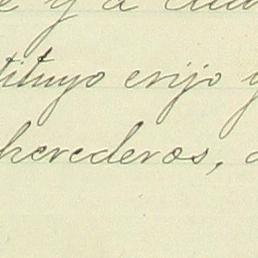 y a
tituyo erijo y
herederos,